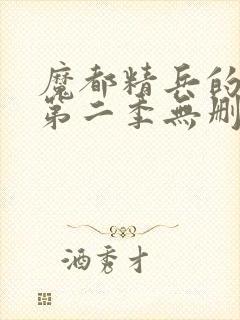 魔都精兵的
第二季無刪
酒秀才